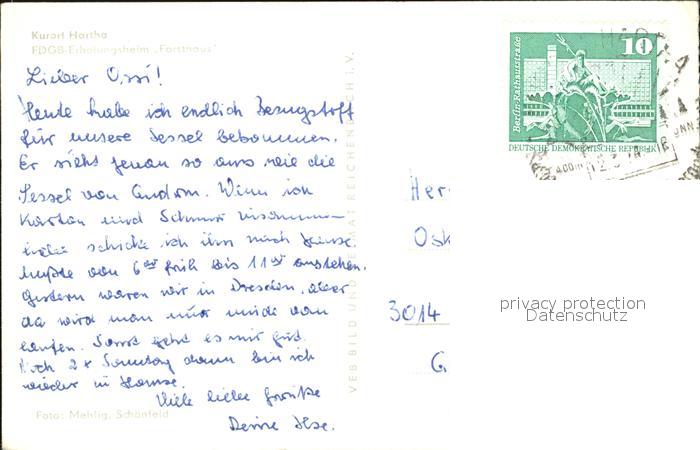 Kurort Hartha
FDGB-Erholungsheim „Forsthaus"
Lieber Ossi!
Heute habe ich endlich Bezugstoff
für unsere Sessel bekommen.
Er sieht genau so aus wie die
Sessel von Wenn ich
Karton und Schnur zusammen-
habe schicke ich ihn nach Hause.
Mußte von 6 00 früh bis 11 anstehen.
Gestern waren wir in Dresden, aber
da wird man nur müde vom
laufen. Sonst geht es mir gut.
Noch 2x Sonntag dann bin ich
wieder in Hause.
Viele liebe Grüße
Deine Ilse.
Foto: Mehlig, Schönfeld
VEB BILD UND HEIMAT REICHENBACH I. V.
Berlin-Rathausstraße
10
DEUTSCHE DEMOKRATISCHE REPUBLIK
Her
Osk
3014
G
privacy protection
Datenschutz